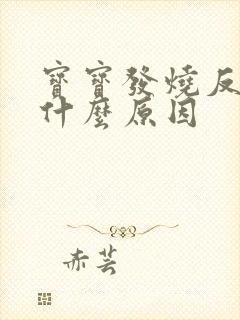 寶寶發燒反
什麼原因
赤芸